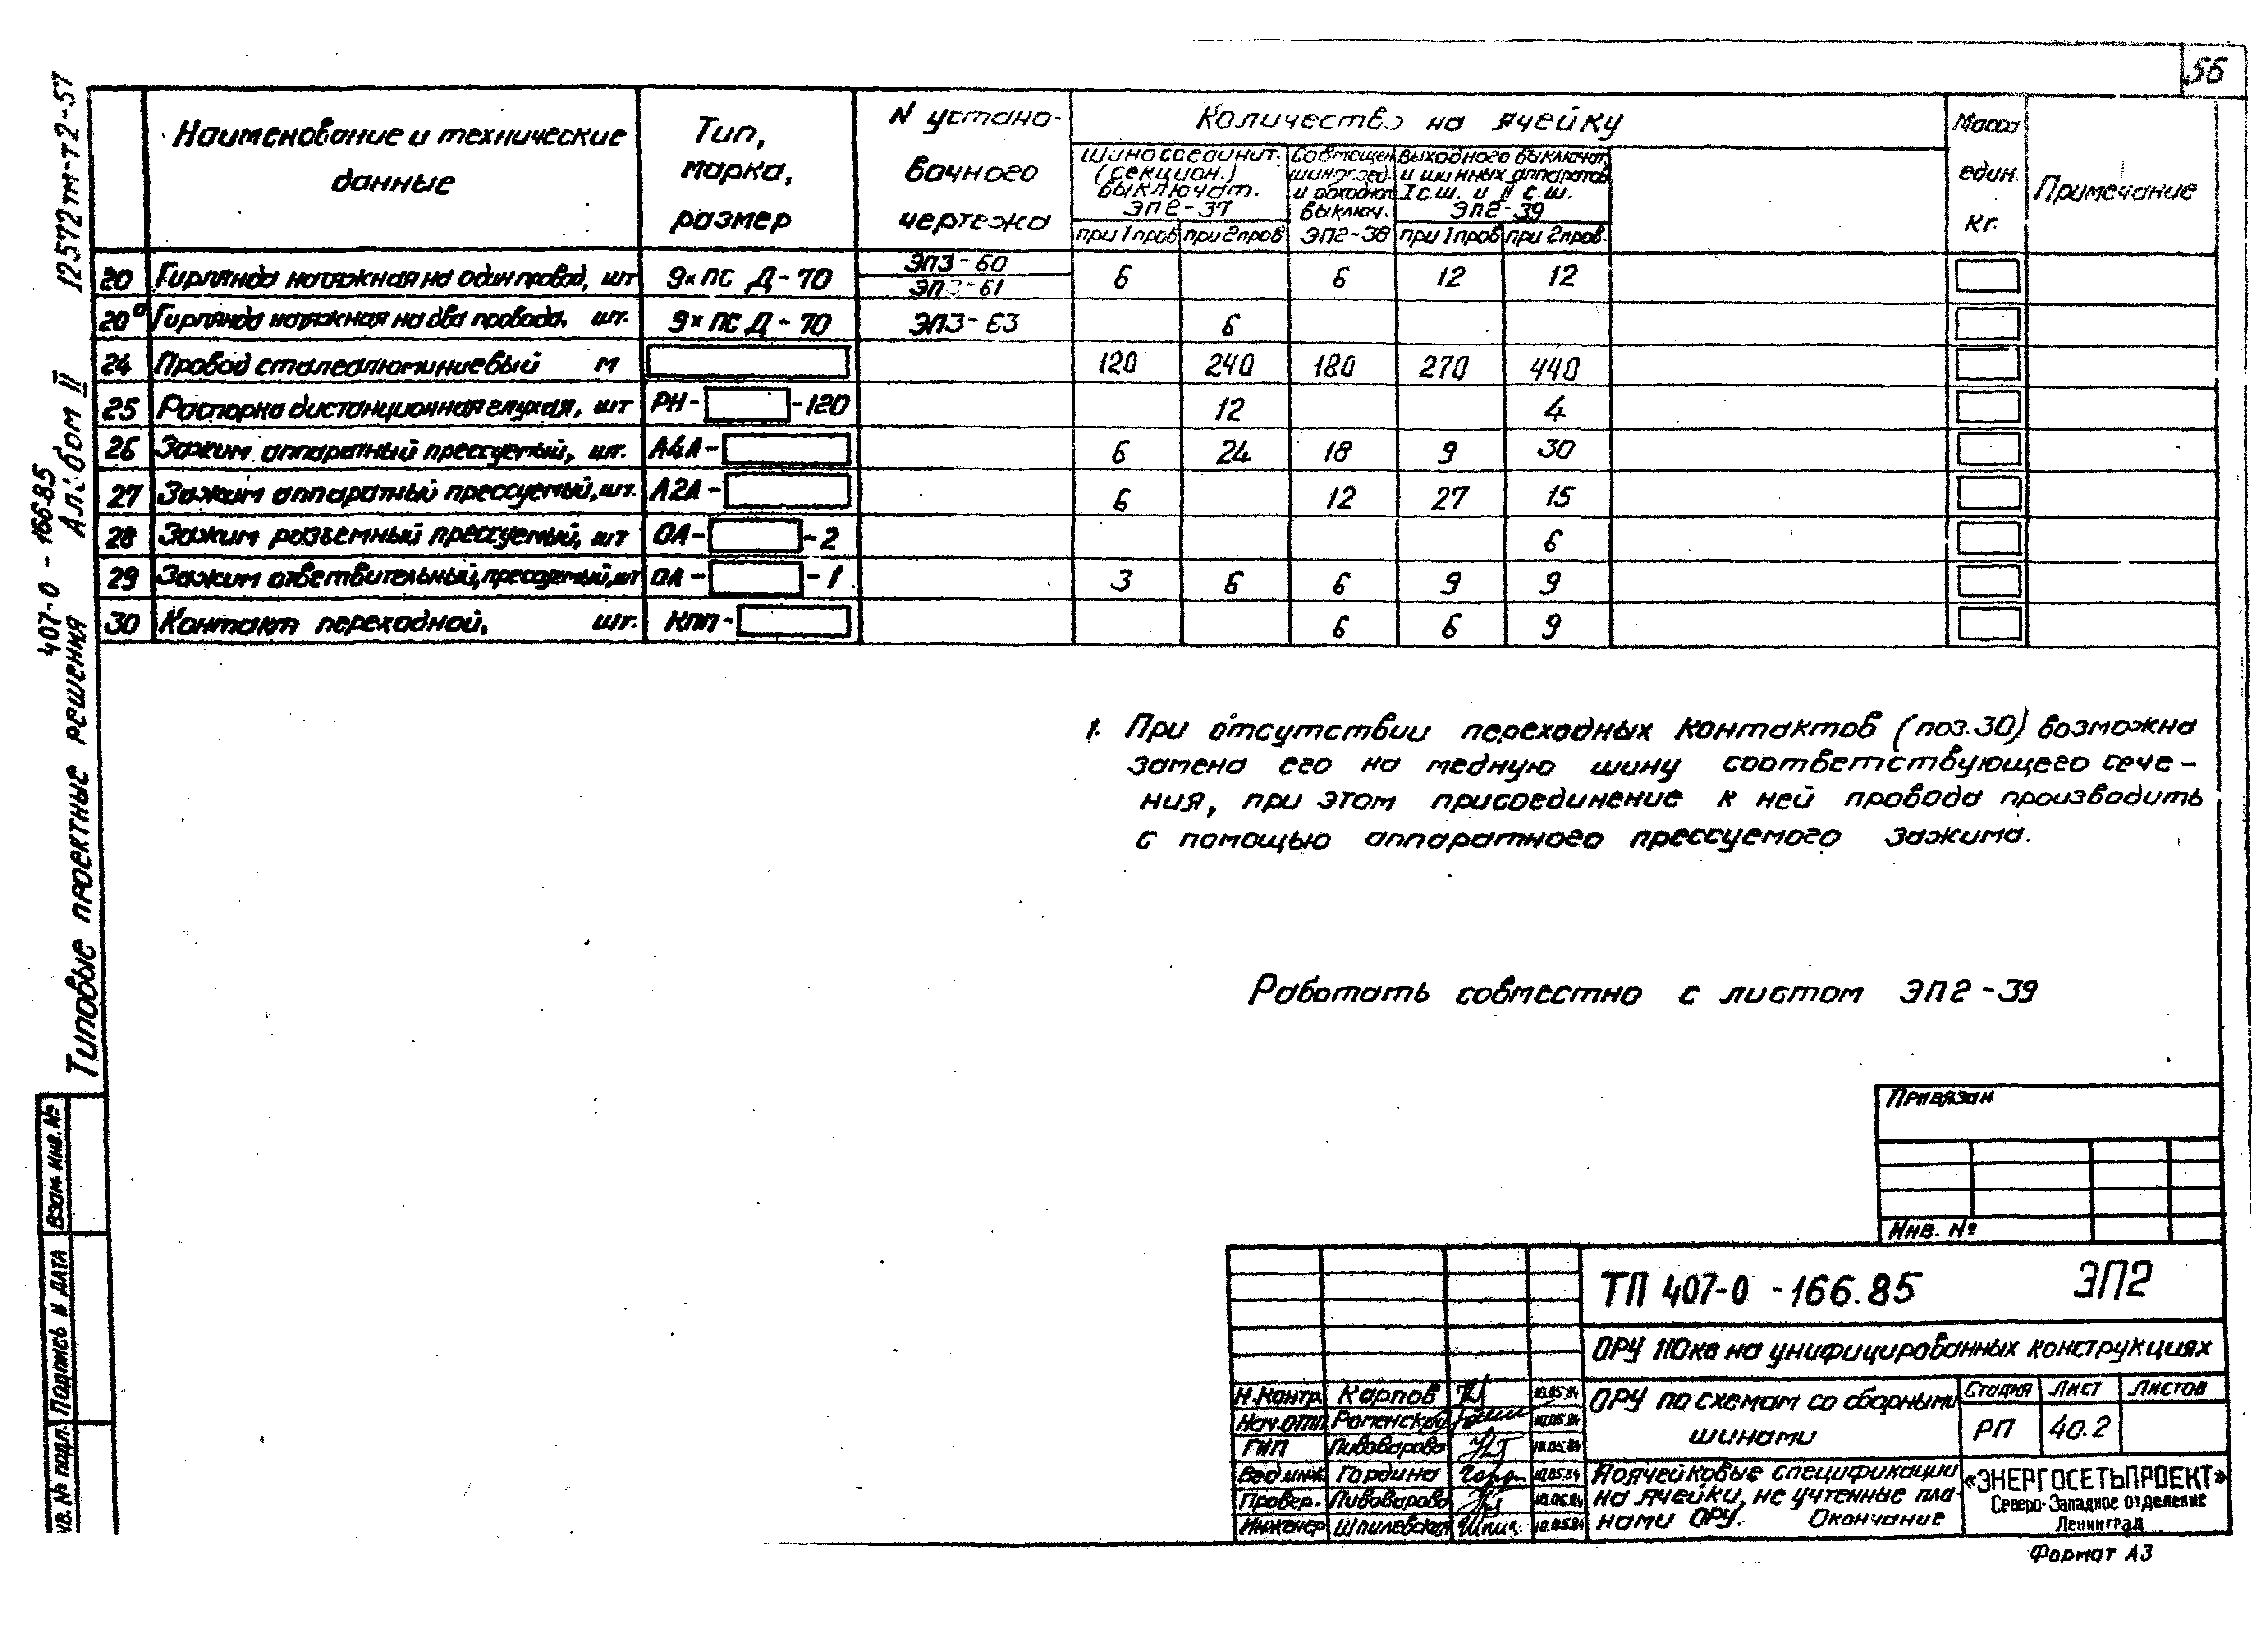 56
12572тм-т2-57
407-0-166.85 Альбом II
Типовые проектные решения
Наименование и технические данные
Тип, марка, размер
N устано-вочного чертежа
Количество на ячейку
Шиносоединит. (секцион.) выключат. ЭП2-37
Совмещен. шиносоед. и обходной выключ. ЭП2-38
Выходного выключат. и шинных аппаратов I с.ш. и II с.ш. ЭП2-39
при 1 пров при 2 пров при 1 пров при 2 пров.
Масса един. кг.
Примечание
20 Гирлянда натяжная на один провод, шт 9×ПС Д-70 ЭП3-60 ЭП3-61 6 6 12 12
20а Гирлянда натяжная на два провода, шт. 9×ПС Д-70 ЭП3-63 6
24 Провод сталеалюминиевый м 120 240 180 270 440
25 Распорка дистанционная глухая, шт РН- -120 12 4
26 Зажим аппаратный прессуемый, шт. А4А- 6 24 18 9 30
27 Зажим аппаратный прессуемый, шт. А2А- 6 12 27 15
28 Зажим разъемный прессуемый, шт ОА- -2 6
29 Зажим ответвительный, прессуемый, шт ОА- -1 3 6 6 9 9
30 Контакт переходной, шт. КПП- 6 6 9
1. При отсутствии переходных контактов (поз.30) возможна
замена его на медную шину соответствующего сече-
ния, при этом присоединение к ней провода производить
с помощью аппаратного прессуемого зажима.
Работать совместно с листом ЭП2-39
Привязан
Инв. №
Взам. инв. №
Подпись и дата
Инв. № подл.
ТП 407-0-166.85 ЭП2
ОРУ 110кв на унифицированных конструкциях
Н.контр. Карпов 10.05.84
Нач.отп. Роменский 10.05.84
ГИП Пивоварова 10.05.84
Вед.инж. Гордина 10.05.84
Провер. Пивоварова 10.05.84
Инженер Шпилевская 10.05.84
ОРУ по схемам со сборными
шинами
Стадия Лист Листов
РП 40.2
Поячейковые спецификации
на ячейки, не учтенные пла-
нами ОРУ. Окончание
«ЭНЕРГОСЕТЬПРОЕКТ»
Северо-Западное отделение
Ленинград
Формат А3